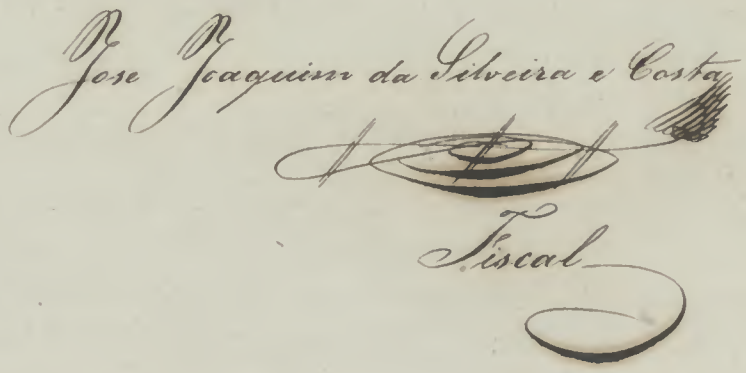 Jose Joaquim da Silveira e Costa
Fiscal